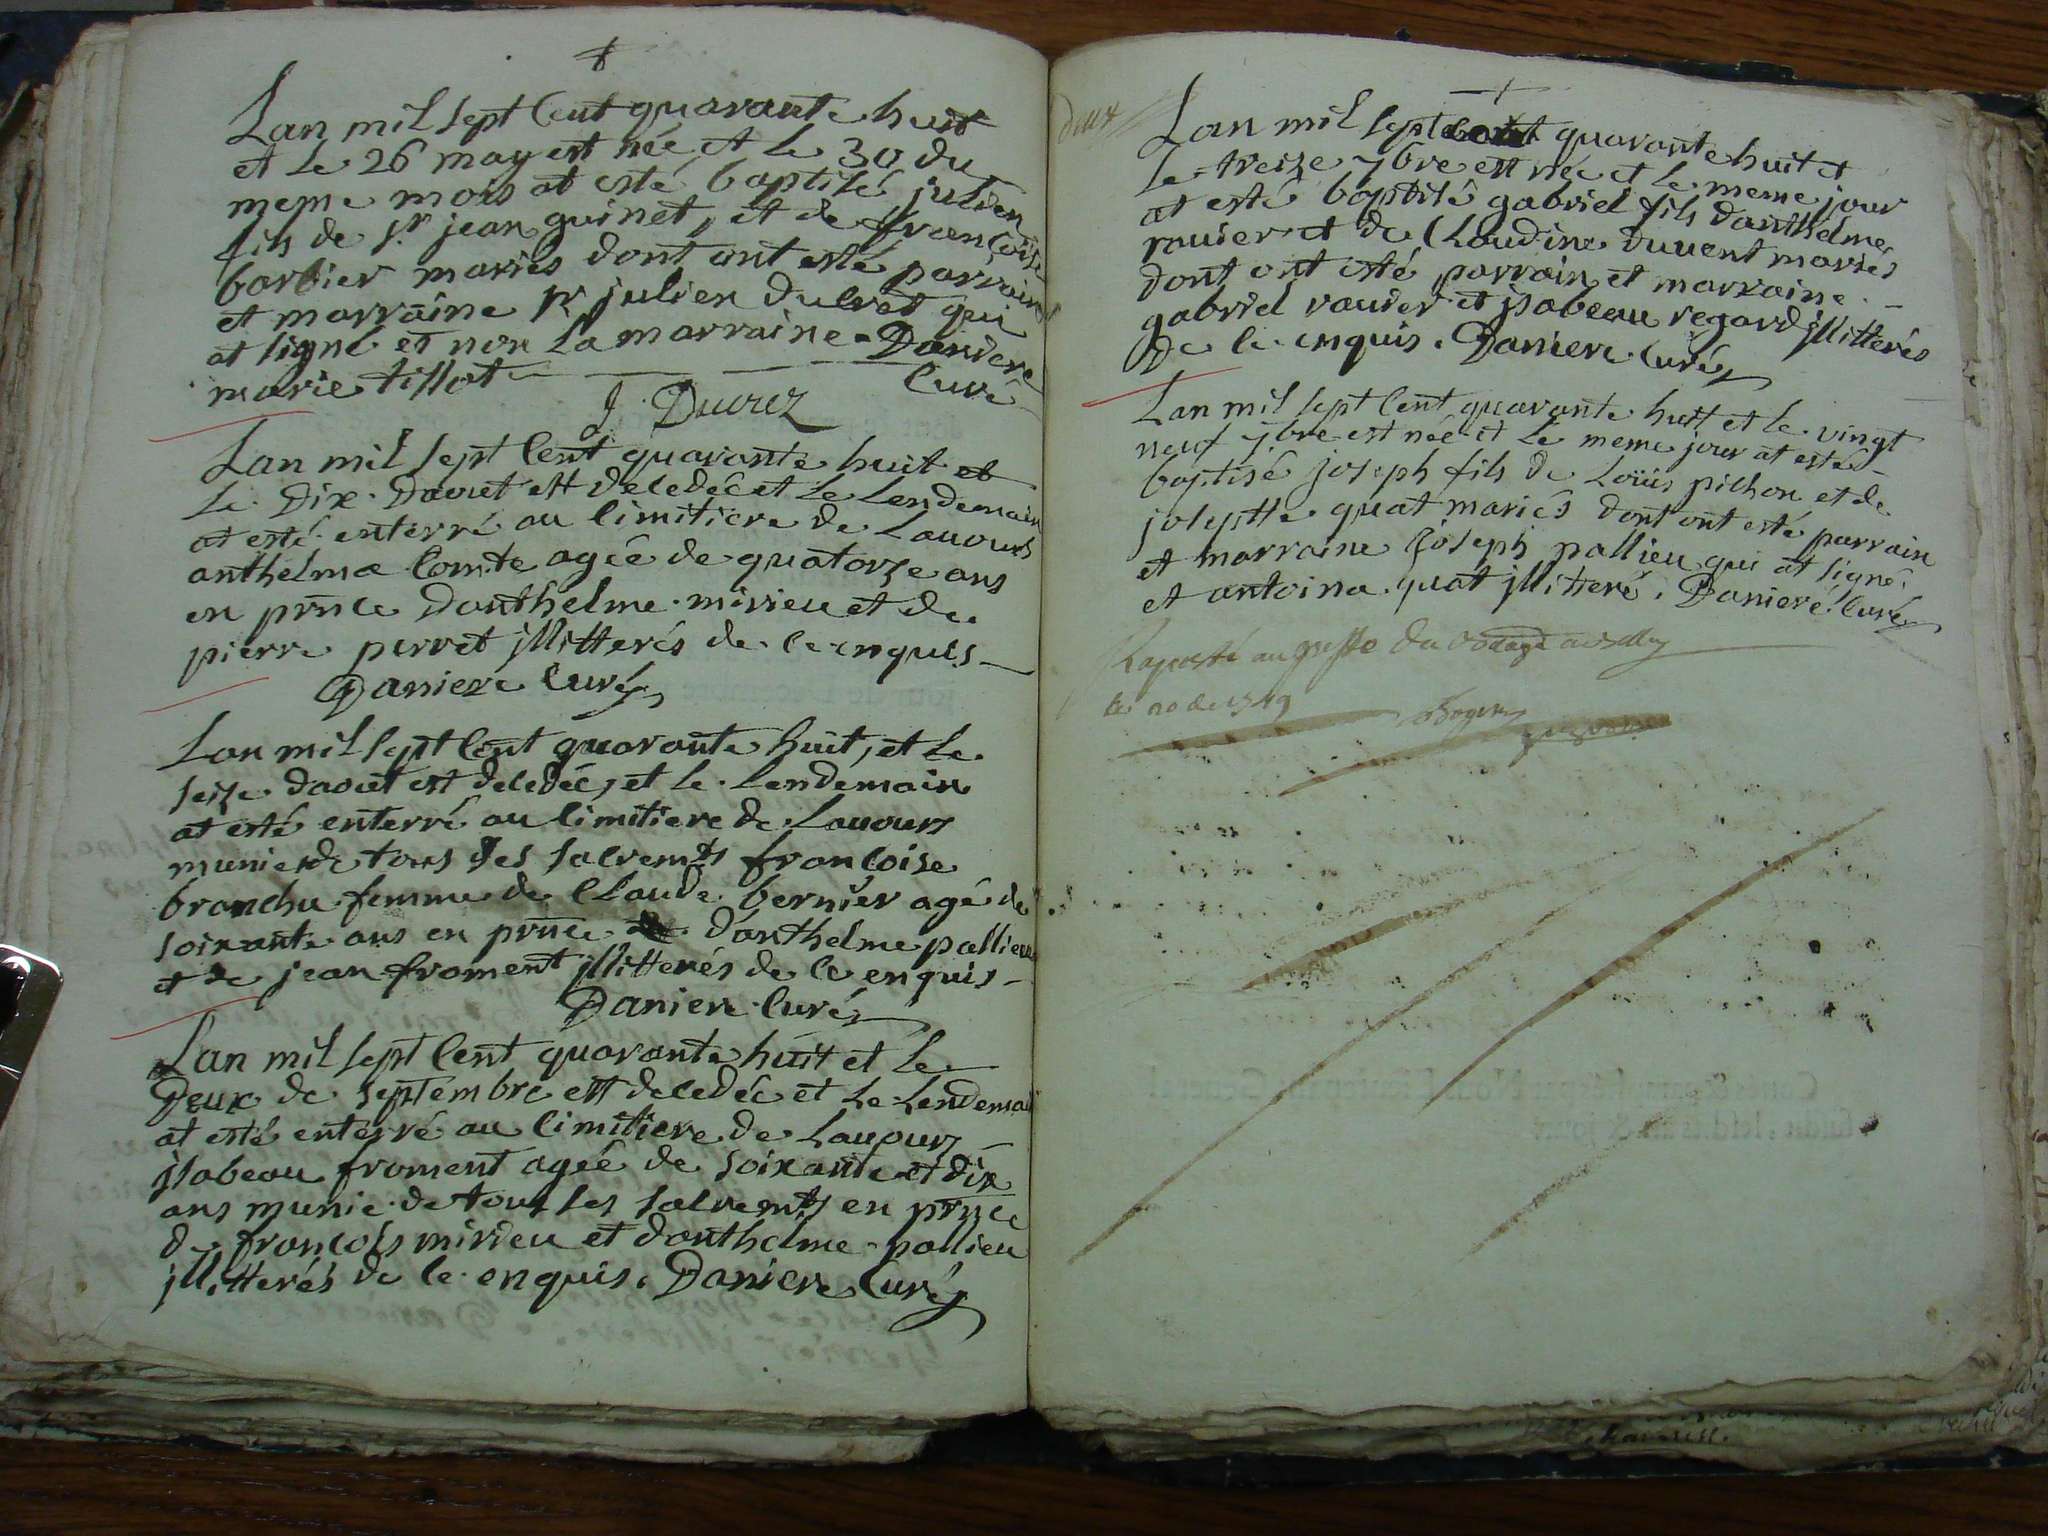 Lan mil sept Cent quarante huit
et le 26 may est née et le 30 du
meme mois at esté baptisé julien
fils de sr jean guinet, et de françoise
barbier mariés dont ont esté parrain
et marraine sr julien Duvret qui
at signé et non La marraine Daniere
marie tissot Curé
J. Duurez
Lan mil sept Cent quarante huit et
Le Dix Daout est decedée et Le Lendemain
at esté enterré au Cimitiere de Lavours
anthelma Comte agée de quatorze ans
en prnce Danthelme mirieu et de
pierre perret jllitterés de ce enquis
Daniere Curé
Lan mil sept Cent quarante huit, et Le
seize daout est decedée, et le Lendemain
at esté enterré au Cimitiere de Lavours
munie de tous les sacremts françoise
branchu femme de Claude bernier agé de
soixante ans en prnce danthelme pallieu
et de jean froment jllitterés de ce enquis
Daniere Curé
Lan mil sept Cent quarante huit et Le
Deux de septembre est decedée et Le Lendemai
at esté enterré au Cimitiere de Lavours
jsabeau froment agée de soixante et dix
ans munie de tous les sacremts en prnce
de françois mirieu et danthelme pallieu
jllitterés de ce enquis. Daniere Curé
deux
Lan mil sept cent quarante huit et
Le treize 7bre est née et le meme jour
at esté baptisé gabriel fils danthelme
ravier et de Claudine Duvent mariés
dont ont esté parrain et marraine
gabriel ravier et jsabeau regard jllitterés
De ce enquis. Daniere Curé
Lan mil sept Cent quarante huit et le vingt
neuf 7bre est née et Le meme jour at esté
baptisé joseph fils de Loüis pichon et de
josepthe quat mariés dont ont esté parrain
et marraine joseph pallieu qui at signé
et antoina quat jllitteré. Daniere Curé
Raporté au greffe du
le 20 1749